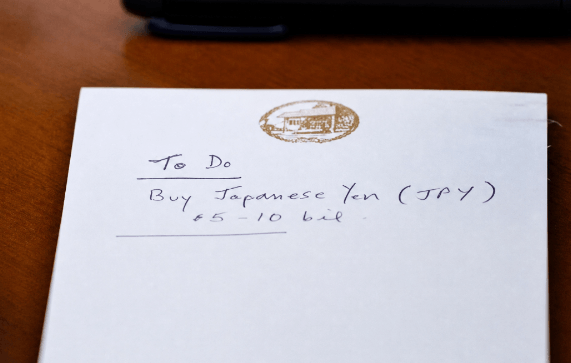 To Do
Buy Japanese Yen (JPY)
$5-10 bil.